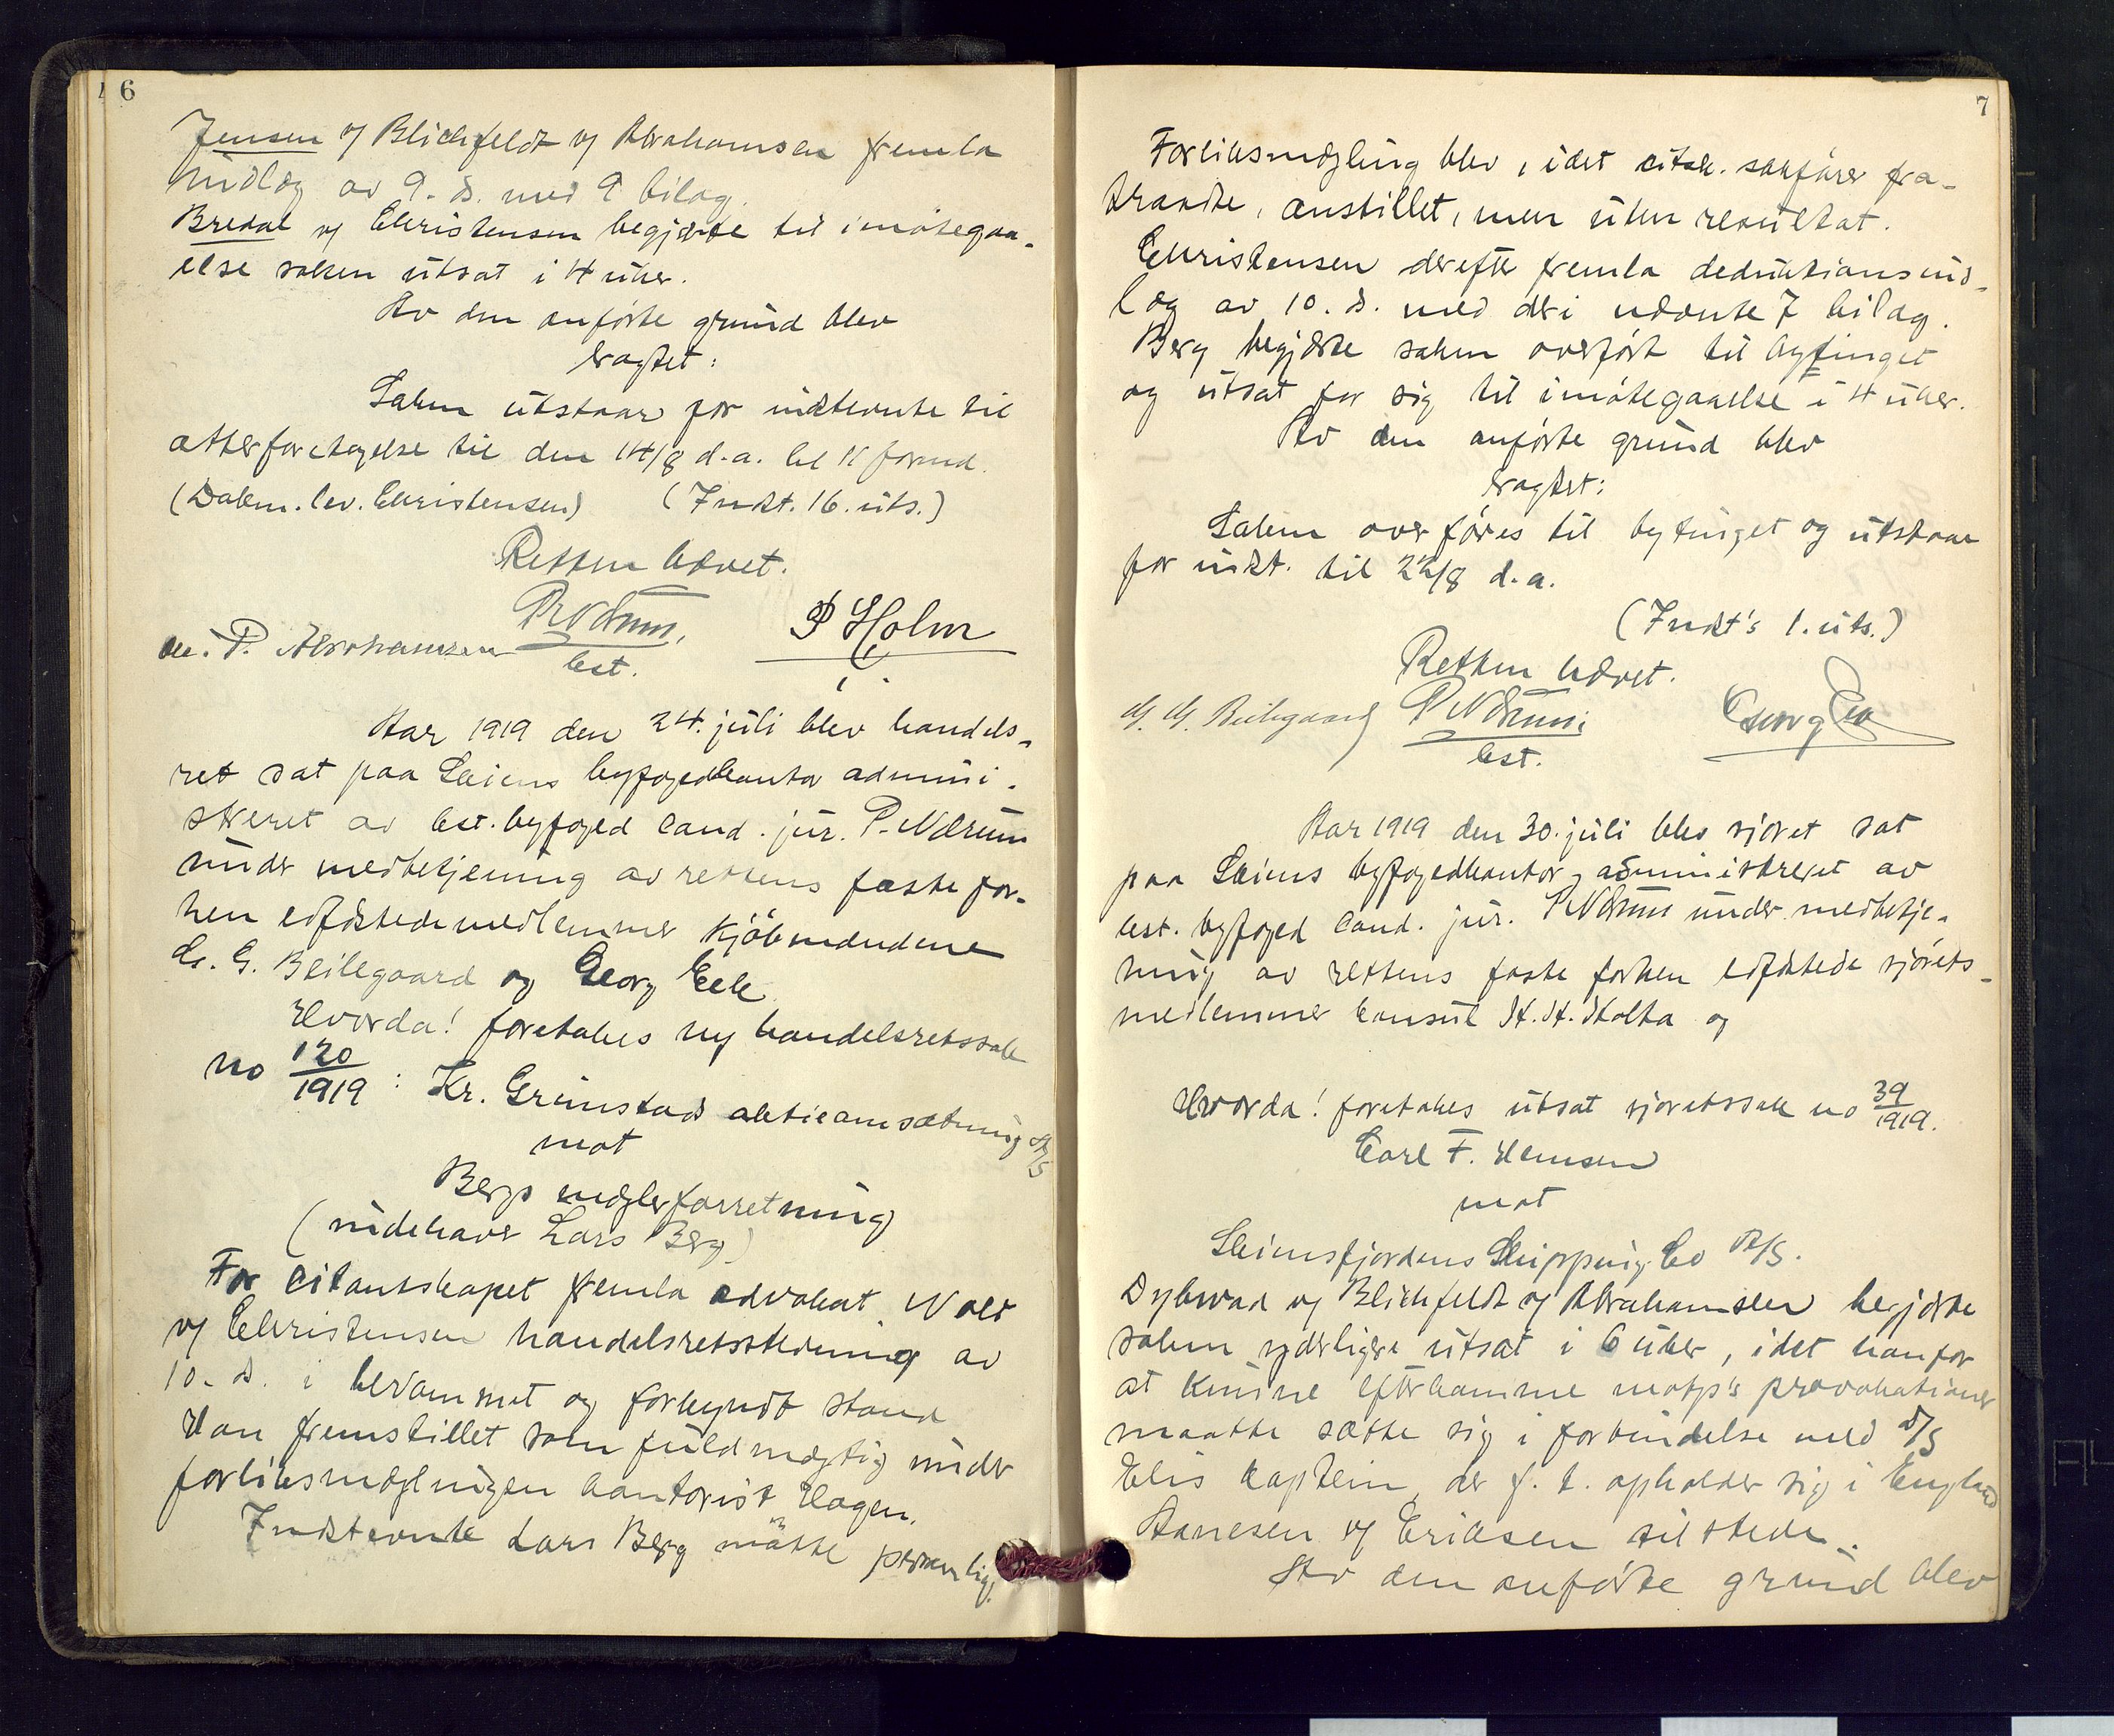 6
Jensen v/ Blichfeldt v/ Abrahamsen fremla
indlæg av 9. ds. med 9 bilag.
Bredal v/ Christensen begjærte til imøtegaa-
else saken utsat i 4 uker.
Av den anførte grund blev
eragtet:
Saken utstaar for indtevnte til
atterforetagelse til den 14/8 d.a. kl 11 formd.
(Dakm. lev. Christensen) (Indst. 16. uts.)
Retten hævet.
P. Abrahamsen P Ndrum P Holm
cst.
Aar 1919 den 24. juli blev handels-
ret sat paa Skiens byfogedkontor admini-
streret av cst. byfoged cand. jur. P. Ndrum
under medbetjening av rettens faste for-
hen edfæstede medlemmer kjøbmændene
G. G. Beilegaard og Georg Eek
Hvorda! foretakes ny handelsretssak
no 120/1919: Kr. Grimstads aktieomsætning A/S
mot
Bergs mæglerforretning
(indehaver Lars Berg)
For citantskapet fremla advokat Wold
v/ Christensen handelsretsstevning av
10. ds. i berammet og forkyndt stand
Han fremstillet som fuldmægtig under
forliksmæglingen kontorist Hagen.
Indstevnte Lars Berg møtte personlig.
7
Forliksmægling blev, idet citsk. sakfører fra-
traadte, anstillet, men uten resultat.
Christensen derefter fremla deduktionsind-
læg av 10. ds. med deri nævnte 7 bilag.
Berg begjærte saken overført til bytinget
og utsat for sig til imøtegaaelse i 4 uker.
Av den anførte grund blev
eragtet:
Saken overføres til bytinget og utstaar
for indst. til 22/8 d.a.
(Indst's 1. uts.)
Retten hævet.
G. G. Beilegaard P Ndrum Georg Eek
cst.
Aar 1919 den 30. juli blev sjøret sat
paa Skiens byfogedkontor, administreret av
cst. byfoged cand. jur. P Ndrum under medbetje-
ning av rettens faste forhen edfæstede sjørets-
medlemmer konsul H. H. Holta og
Hvorda! foretakes utsat sjøretssak no 39/1919.
Carl F. Hemsen
mot
Skiensfjordens Shipping Co A/S.
Dybwad v/ Blichfeldt v/ Abrahamsen begjærte
saken yderligere utsat i 6 uker, idet han for
at kunne efterkomme motp's provokationer
maatte sætte sig i forbindelse med D/S
Elis kaptein, der f. t. opholder sig i England
Aanesen v/ Eriksen tilstede.
Av den anførte grund blev